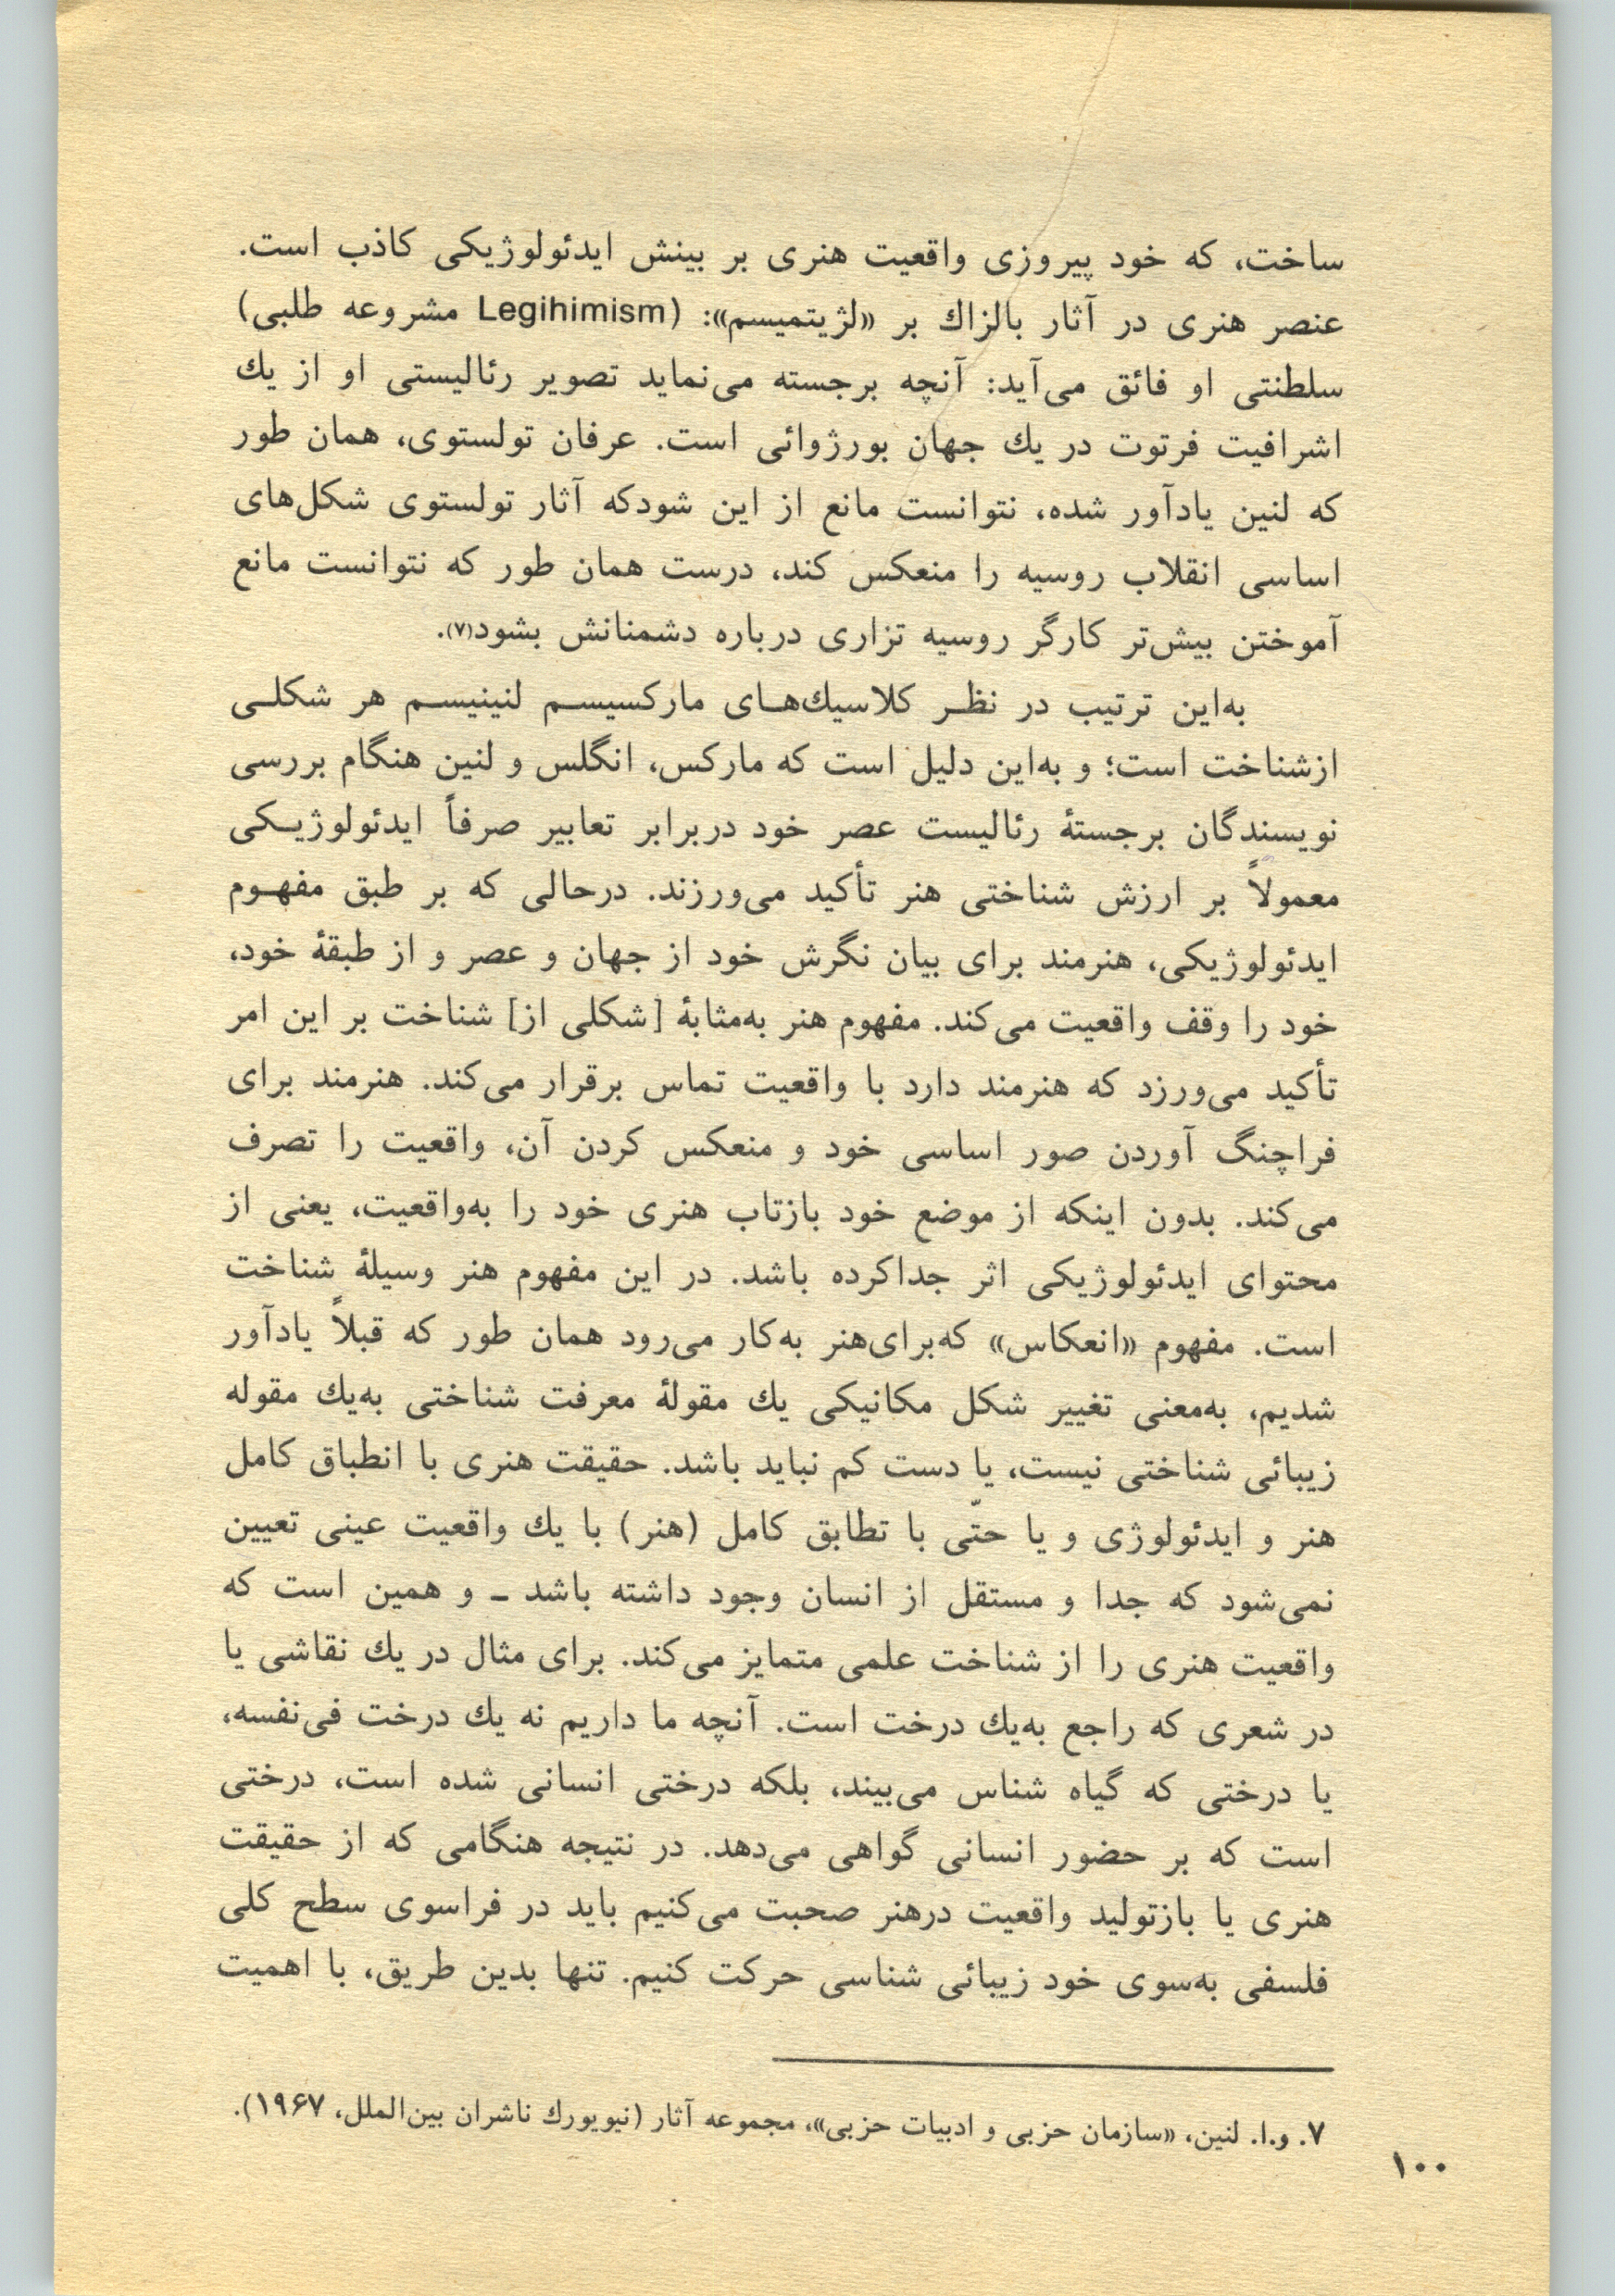 ساخت، که خود پیروزی واقعیت هنری بر بینش ایدئولوژیکی کاذب است.
عنصر هنری در آثار بالزاك بر «لژیتمیسم»: (Legihimism مشروعه طلبی)
سلطنتی او فائق می‌آید: آنچه برجسته می‌نماید تصویر رئالیستی او از یك
اشرافیت فرتوت در یك جهان بورژوائی است. عرفان تولستوی، همان طور
که لنین یادآور شده، نتوانست مانع از این شودکه آثار تولستوی شکل‌های
اساسی انقلاب روسیه را منعکس کند، درست همان طور که نتوانست مانع
آموختن بیش‌تر کارگر روسیه تزاری درباره دشمنانش بشود(۷).
به‌این ترتیب در نظر کلاسیك‌های مارکسیسم لنینیسم هر شکلی
ازشناخت است؛ و به‌این دلیل است که مارکس، انگلس و لنین هنگام بررسی
نویسندگان برجستهٔ رئالیست عصر خود دربرابر تعابیر صرفاً ایدئولوژیکی
معمولاً بر ارزش شناختی هنر تأکید می‌ورزند. درحالی که بر طبق مفهوم
ایدئولوژیکی، هنرمند برای بیان نگرش خود از جهان و عصر و از طبقهٔ خود،
خود را وقف واقعیت می‌کند. مفهوم هنر به‌مثابهٔ [شکلی از] شناخت بر این امر
تأکید می‌ورزد که هنرمند دارد با واقعیت تماس برقرار می‌کند. هنرمند برای
فراچنگ آوردن صور اساسی خود و منعکس کردن آن، واقعیت را تصرف
می‌کند. بدون اینکه از موضع خود بازتاب هنری خود را به‌واقعیت، یعنی از
محتوای ایدئولوژیکی اثر جداکرده باشد. در این مفهوم هنر وسیلهٔ شناخت
است. مفهوم «انعکاس» که‌برای‌هنر به‌کار می‌رود همان طور که قبلاً یادآور
شدیم، به‌معنی تغییر شکل مکانیکی یك مقولهٔ معرفت شناختی به‌یك مقوله
زیبائی شناختی نیست، یا دست کم نباید باشد. حقیقت هنری با انطباق کامل
هنر و ایدئولوژی و یا حتّی با تطابق کامل (هنر) با یك واقعیت عینی تعیین
نمی‌شود که جدا و مستقل از انسان وجود داشته باشد ـ و همین است که
واقعیت هنری را از شناخت علمی متمایز می‌کند. برای مثال در یك نقاشی یا
در شعری که راجع به‌یك درخت است. آنچه ما داریم نه یك درخت فی‌نفسه،
یا درختی که گیاه شناس می‌بیند، بلکه درختی انسانی شده است، درختی
است که بر حضور انسانی گواهی می‌دهد. در نتیجه هنگامی که از حقیقت
هنری یا بازتولید واقعیت درهنر صحبت می‌کنیم باید در فراسوی سطح کلی
فلسفی به‌سوی خود زیبائی شناسی حرکت کنیم. تنها بدین طریق، با اهمیت
۷. و.ا. لنین، «سازمان حزبی و ادبیات حزبی»، مجموعه آثار (نیویورك ناشران بین‌الملل، ۱۹۶۷).
۱۰۰